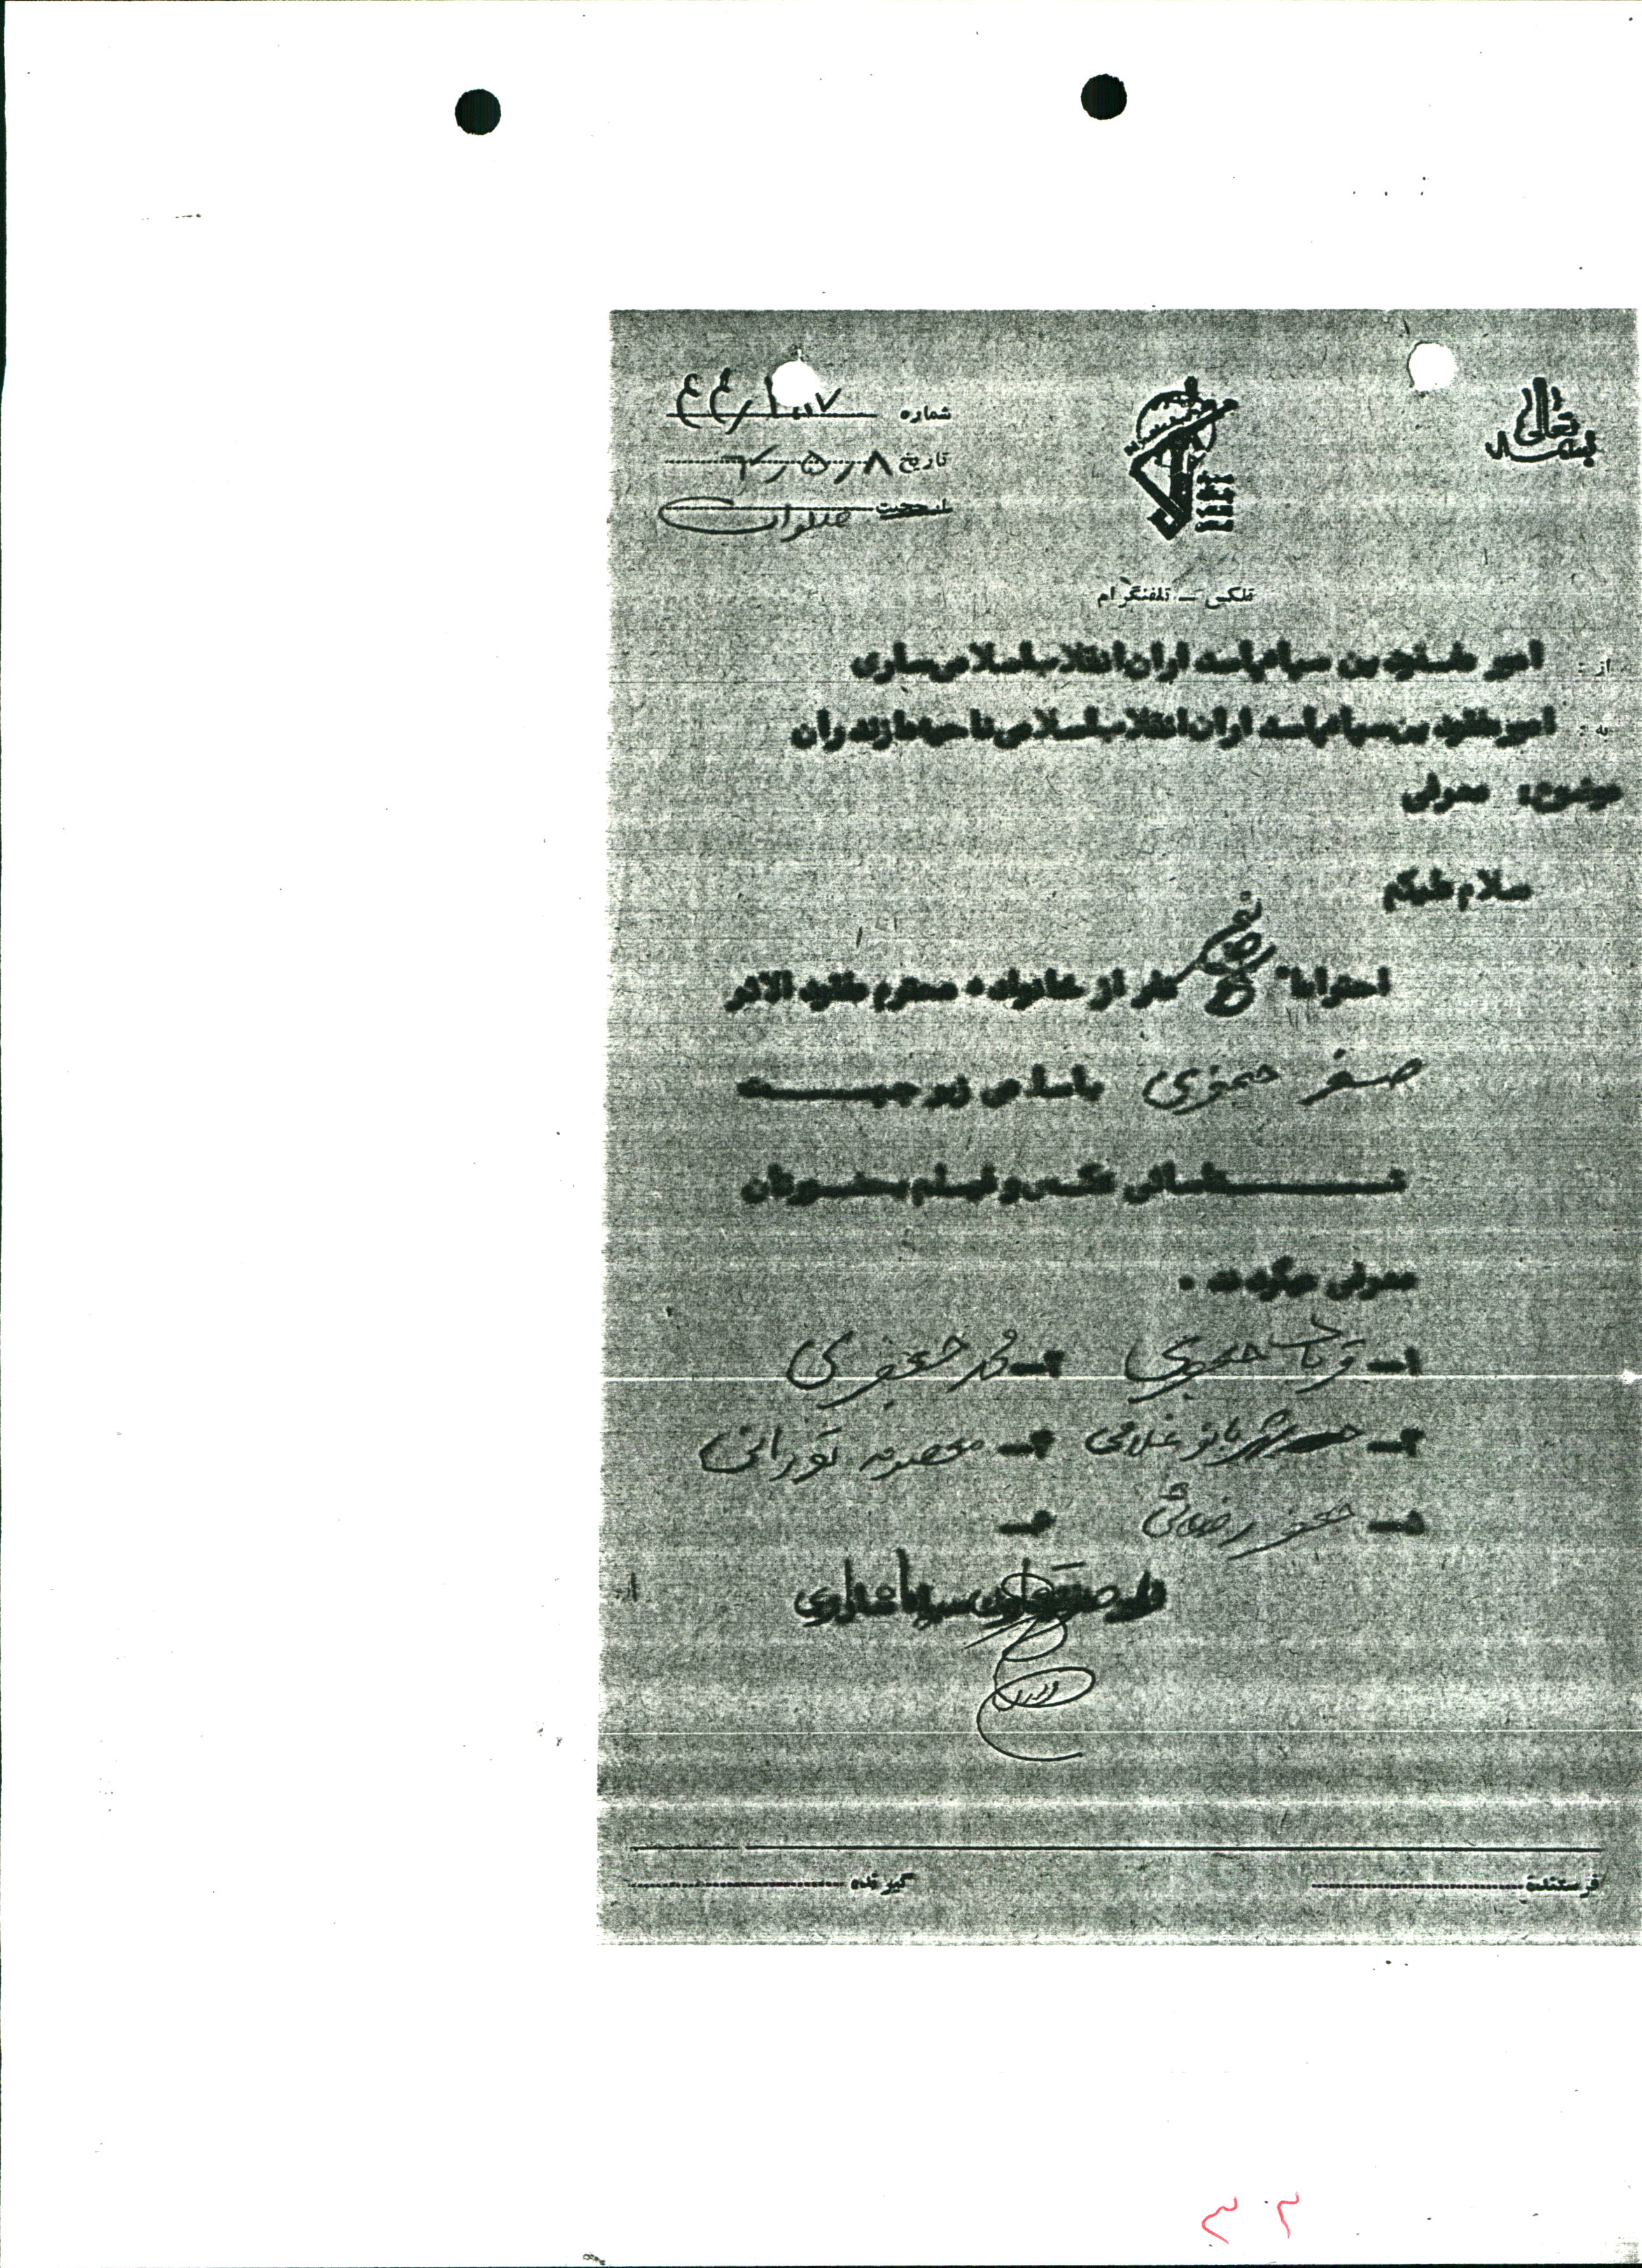 بسمه تعالی
شماره
تاریخ ۶۲٫۵٫۸
تلکس ــ تلفنگرام
از : امور مفقودین سپاه پاسداران انقلاب اسلامی ساری
به : امور مفقودین سپاه پاسداران انقلاب اسلامی ناحیه مازندران
موضوع: معرفی
سلام علیکم
احتراما" نفر از خانواده محترم مفقود الاثر
صفر جعفری با اسامی زیر جهــــت
شــــناسائی عکس و فیلم بحضورتان
معرفی میگردند .
۱ــ قربان جعفری ۲ــ محمد جعفری
۳ــ شهربانو غلامی ۴ــ معصومه تورانی
۵ــ جعفر رضائی ۶ــ
سپاه ساری
فرستنده گیرنده
۳۳